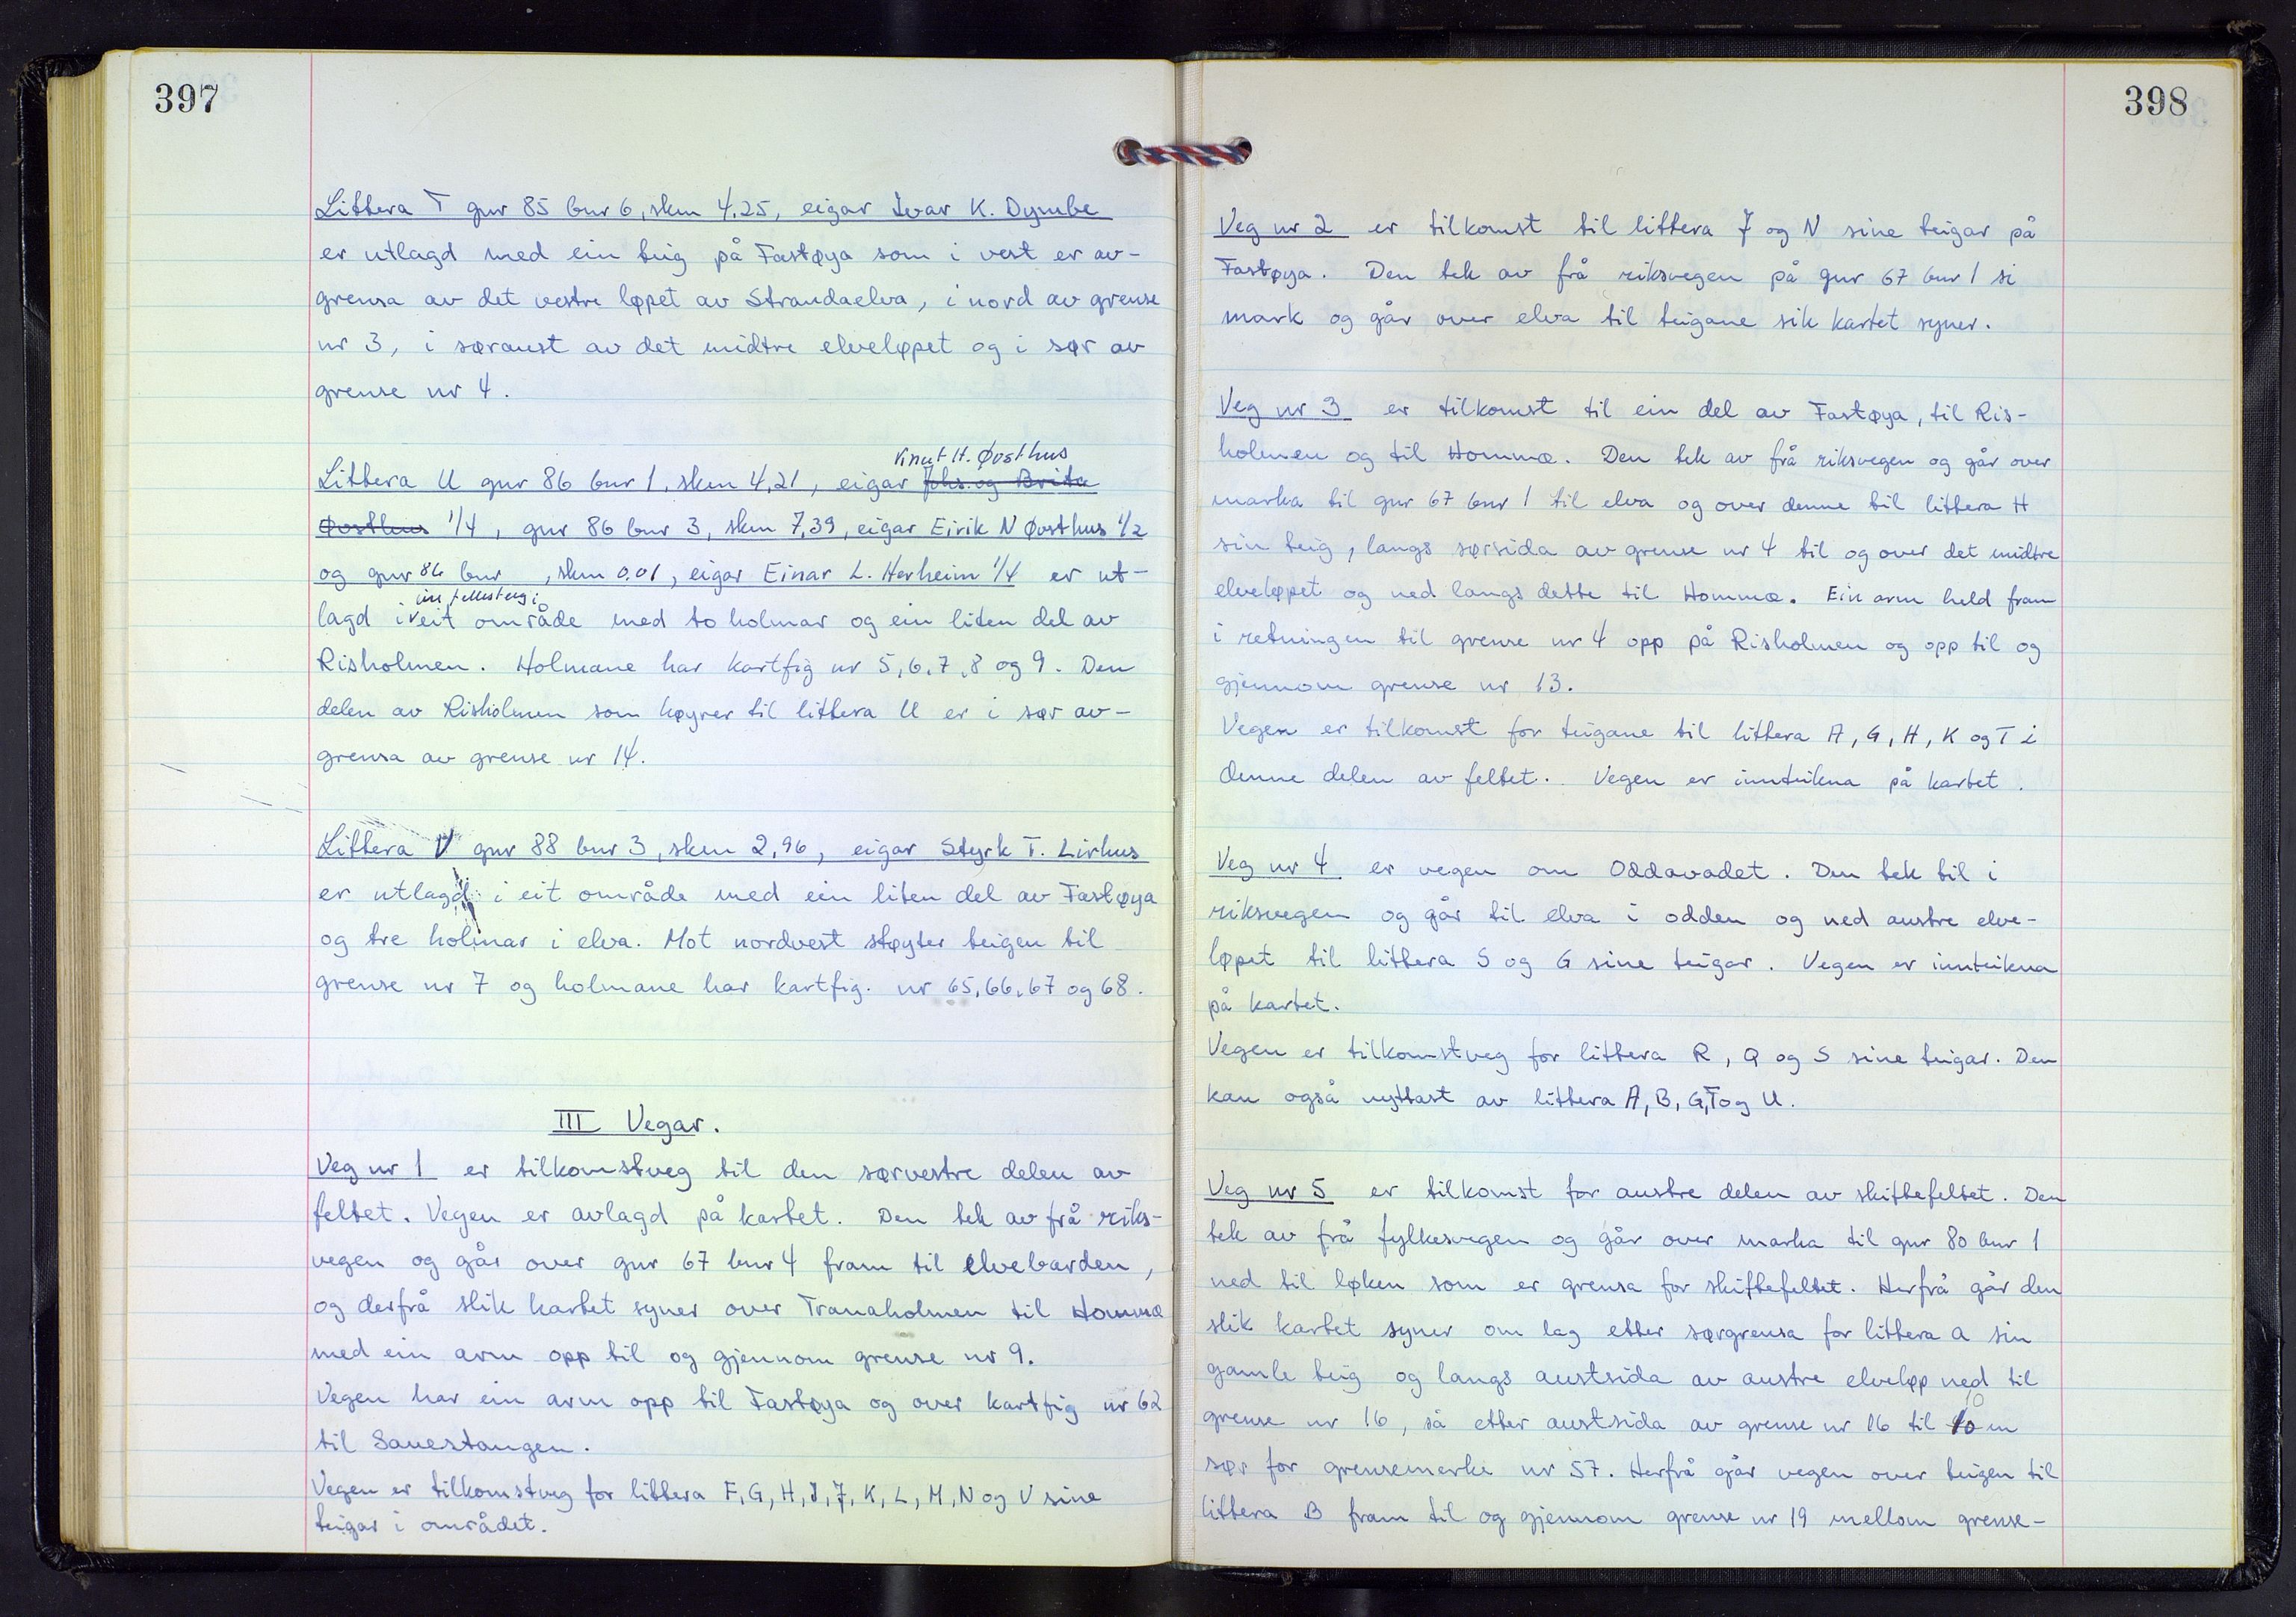 397
Littera T gnr 85 bnr 6, skm 4,25, eigar Ivar K. Dymbe
er utlagd med ein teig på Fastøya som i vest er av-
grensa av det vestre løpet av Strandaelva, i nord av grense
nr 3, i søraust av det midtre elveløpet og i sør av
grense nr 4.
Knut H. Øvsthus
Littera U gnr 86 bnr 1, skm 4,21, eigar Johs. og Brita
Øvsthus 1/4, gnr 86 bnr 3, skm 7,39, eigar Eirik N Øvsthus 1/2
og gnr 86 bnr , skm 0.01, eigar Einar L. Herheim 1/4 er ut-
ein fellesteig i
lagd i eit område med to holmar og ein liten del av
Risholmen. Holmane har kartfig nr 5,6,7,8 og 9. Den
delen av Risholmen som høyrer til littera U er i sør av-
grensa av grense nr 14.
Littera V gnr 88 bnr 3, skm 2,96, eigar Styrk T. Lirhus
er utlagd i eit område med ein liten del av Fastøya
og tre holmar i elva. Mot nordvest støyter teigen til
grense nr 7 og holmane har kartfig. nr 65,66,67 og 68.
III Vegar.
Veg nr 1 er tilkomstveg til den sørvestre delen av
feltet. Vegen er avlagd på kartet. Den tek av frå riks-
vegen og går over gnr 67 bnr 4 fram til elvebarden,
og derfrå slik kartet syner over Tranaholmen til Hommæ
med ein arm opp til og gjennom grense nr 9.
Vegen har ein arm opp til Fastøya og over kartfig nr 62
til Sauestangen.
Vegen er tilkomstveg for littera F, G, H, I, J, K, L, M, N og V sine
teigar i området.
398
Veg nr 2 er tilkomst til littera J og N sine teigar på
Fastøya. Den tek av frå riksvegen på gnr 67 bnr 1 si
mark og går over elva til teigane sik kartet syner.
Veg nr 3 er tilkomst til ein del av Fastøya, til Ris-
holmen og til Hommæ. Den tek av frå riksvegen og går over
marka til gnr 67 bnr 1 til elva og over denne til littera H
sin teig, langs sørsida av grense nr 4 til og over det midtre
elveløpet og ned langs dette til Hommæ. Ein arm held fram
i retningen til grense nr 4 opp på Risholmen og opp til og
gjennom grense nr 13.
Vegen er tilkomst for teigane til littera A, G, H, K og T i
denne delen av feltet. Vegen er innteikna på kartet.
Veg nr 4 er vegen om Oddavadet. Den tek til i
riksvegen og går til elva i odden og ned austre elve-
løpet til littera S og G sine teigar. Vegen er innteikna
på kartet.
Vegen er tilkomstveg for littera R, Q og S sine teigar. Den
kan også nyttast av littera A, B, G, T og U.
Veg nr 5 er tilkomst for austre delen av skiftefeltet. Den
tek av frå fylkesvegen og går over marka til gnr 80 bnr 1
ned til løken som er grensa for skiftefeltet. Herfrå går den
slik kartet syner om lag etter sørgrensa for littera a sin
gamle teig og langs austsida av austre elveløp ned til
grense nr 16, så etter austsida av grense nr 16 til 10 m
sør for grensemerke nr 57. Herfrå går vegen over teigen til
littera B fram til og gjennom grense nr 19 mellom grense-